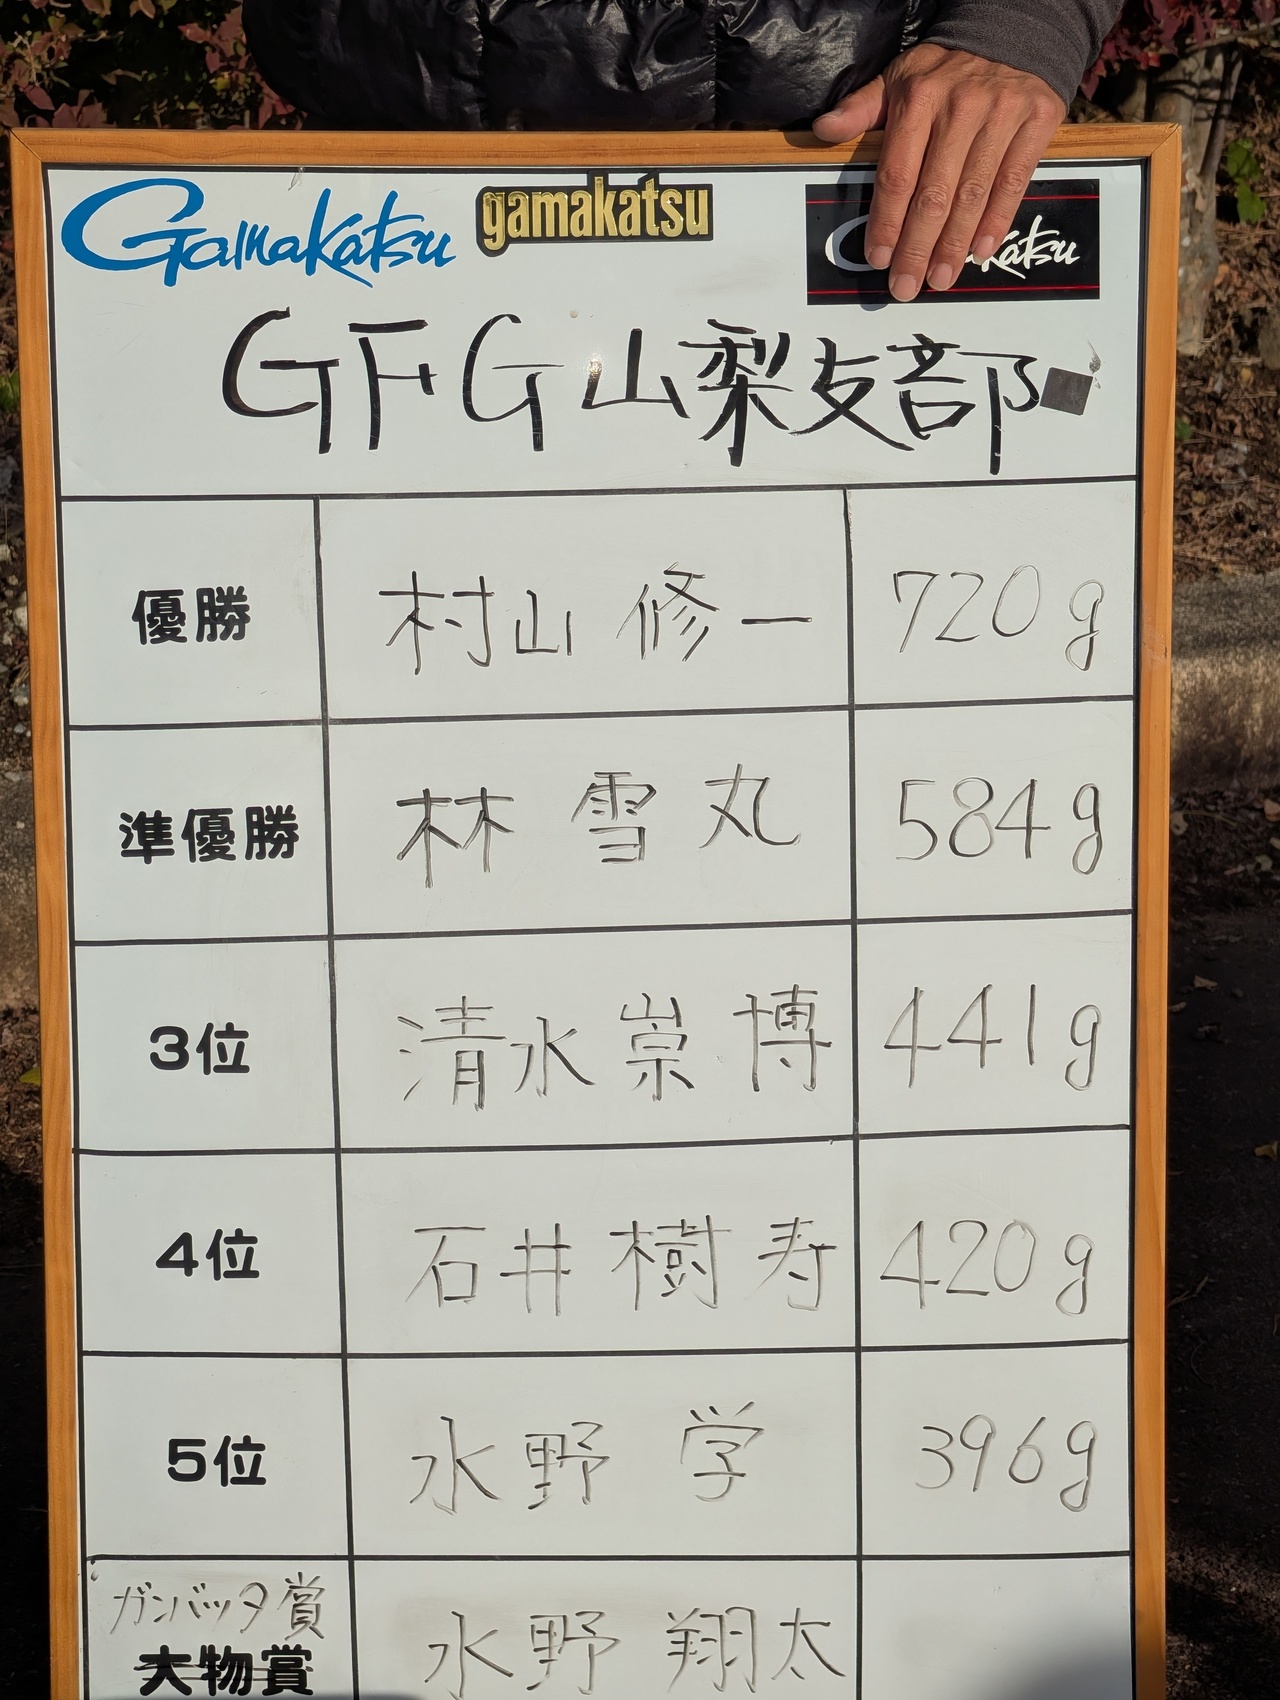 Gamakatsu gamakatsu katsu
GFG山梨支部
優勝 村山 修一 720g
準優勝 林 雪丸 584g
3位 清水 崇博 441g
4位 石井 樹寿 420g
5位 水野 学 396g
ガンバッタ賞
大物賞 水野 翔太